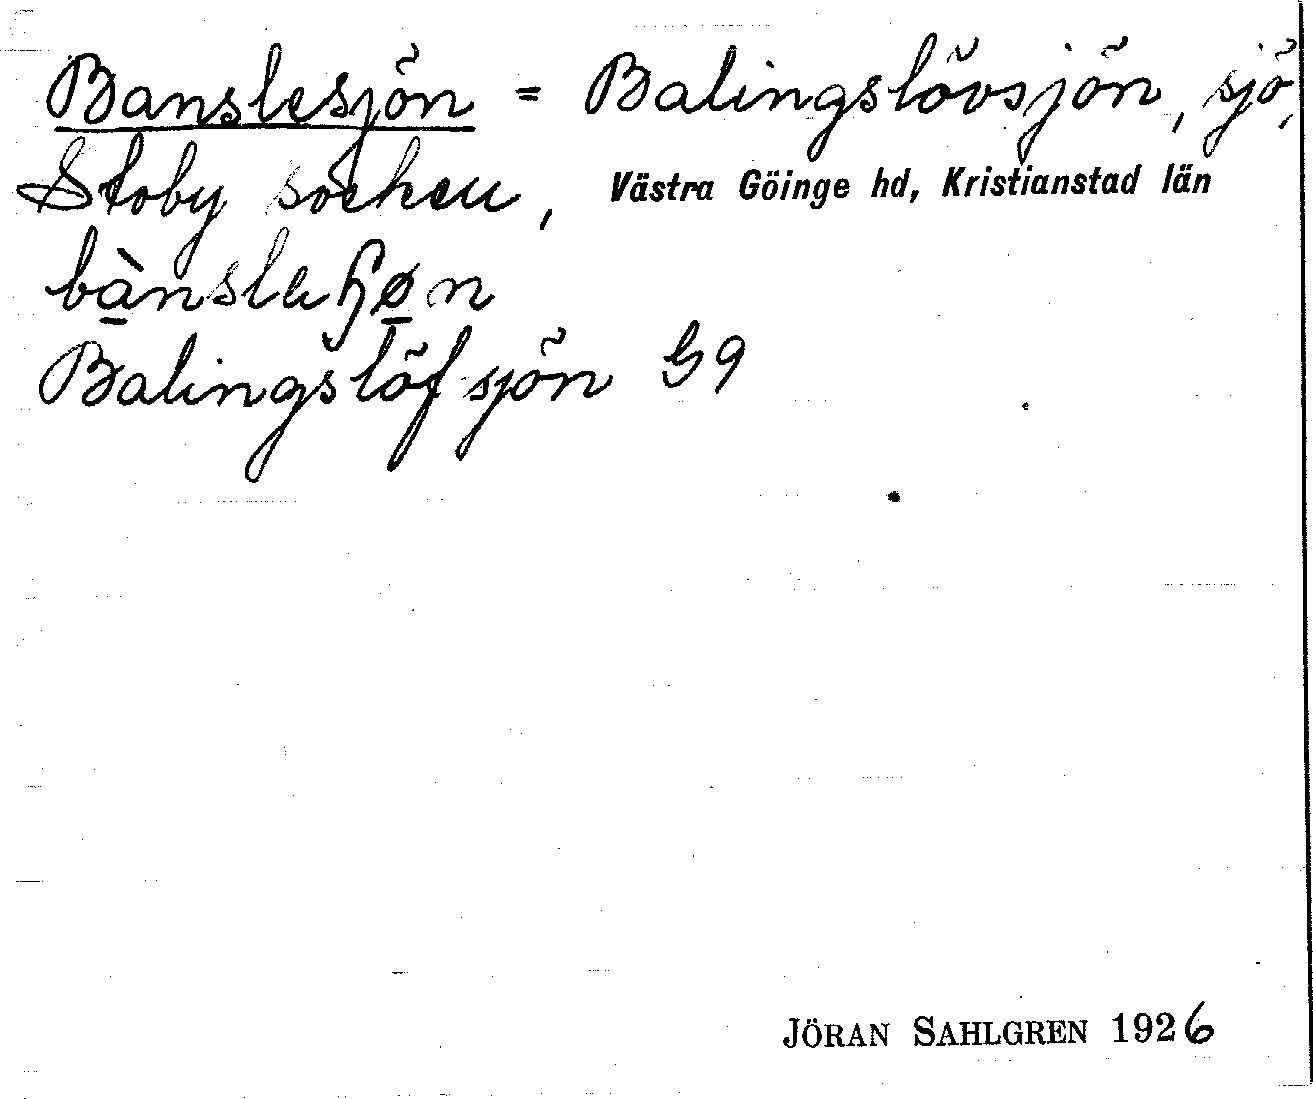 Banslesjön = Balingslövsjön, sjö,
Stoby socken, Västra Göinge hd, Kristianstad län
bànslaɧøn
Balingslöf sjön G9
JÖRAN SAHLGREN 1926